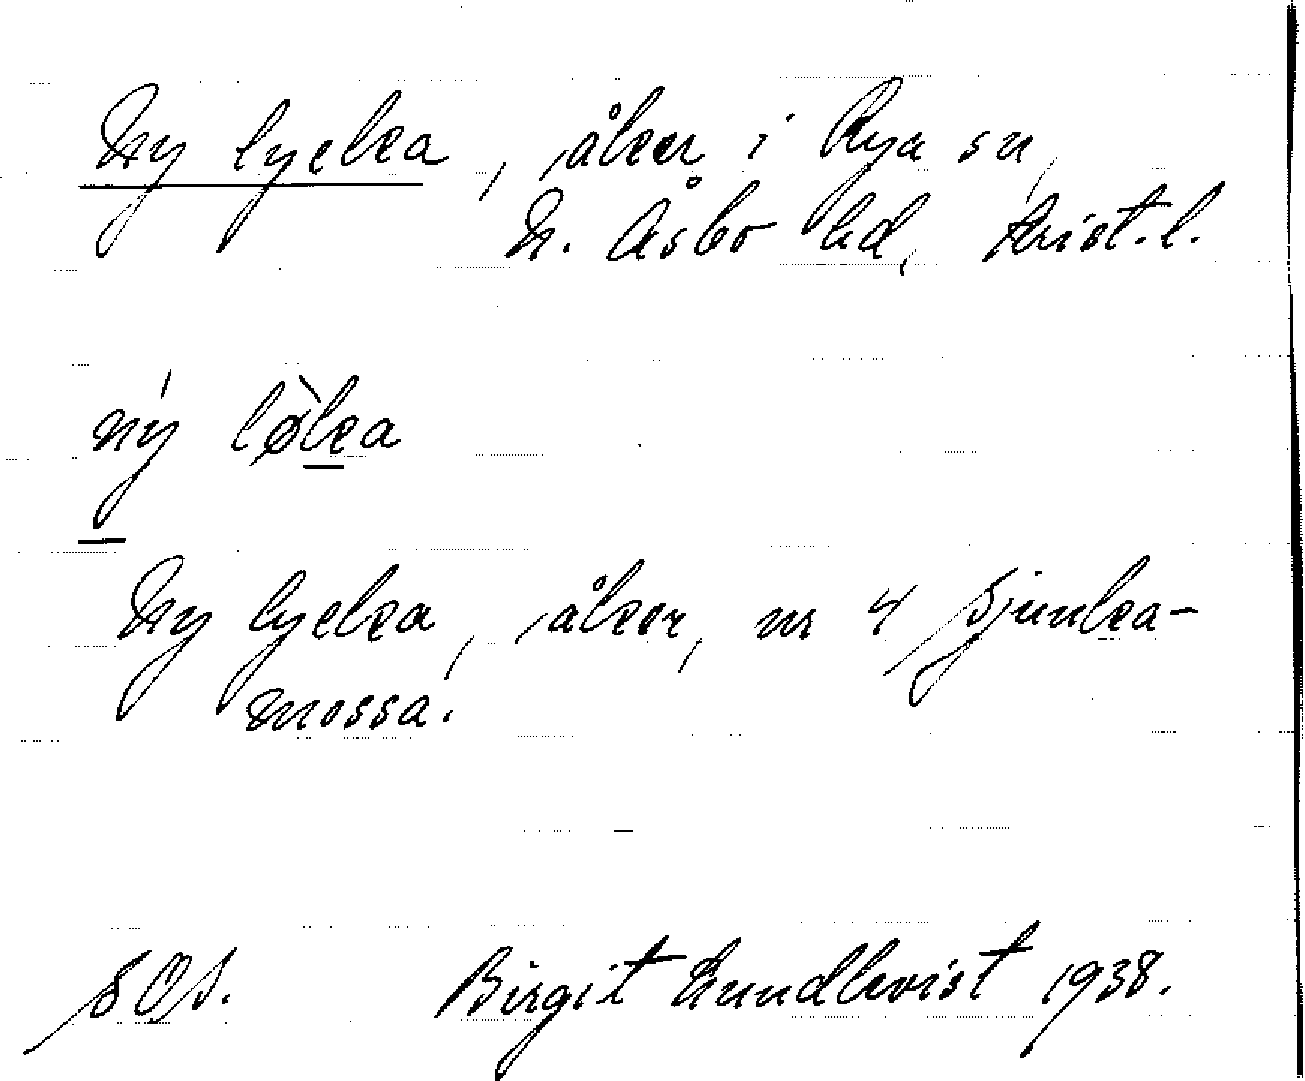 Ny lycka, åker i Rya sn,
N. Åsbo hd, Krist.l.
ný lø̀ka
Ny lycka, åker, nr 4 Sjunka-
mossa.
SOS. Birgit Lundkvist 1938.